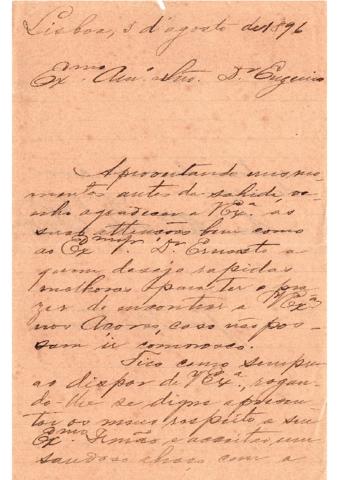 Lisboa, 5 d'agosto de 1896
Ex.mo Am.o e Snr. Dr. Eugenio
Aproveitando uns mo-
mentos antes da sahida, ve-
nho agradecer a V. Ex.a as
suas attenções bem como
ao Ex.mo Snr. Dr. Ernesto a
quem desejo rapidas
melhoras para ter o pra-
zer de encontrar a V. Ex.a
nos Açores, caso não pos-
sam ir commosco.
Fico como sempre
ao dispor de V. Ex.a, rogan-
do-lhe se digne apresen-
tar os meus respeitos a seu
Ex.mo Irmão e acceitar um
saudoso abraço com a